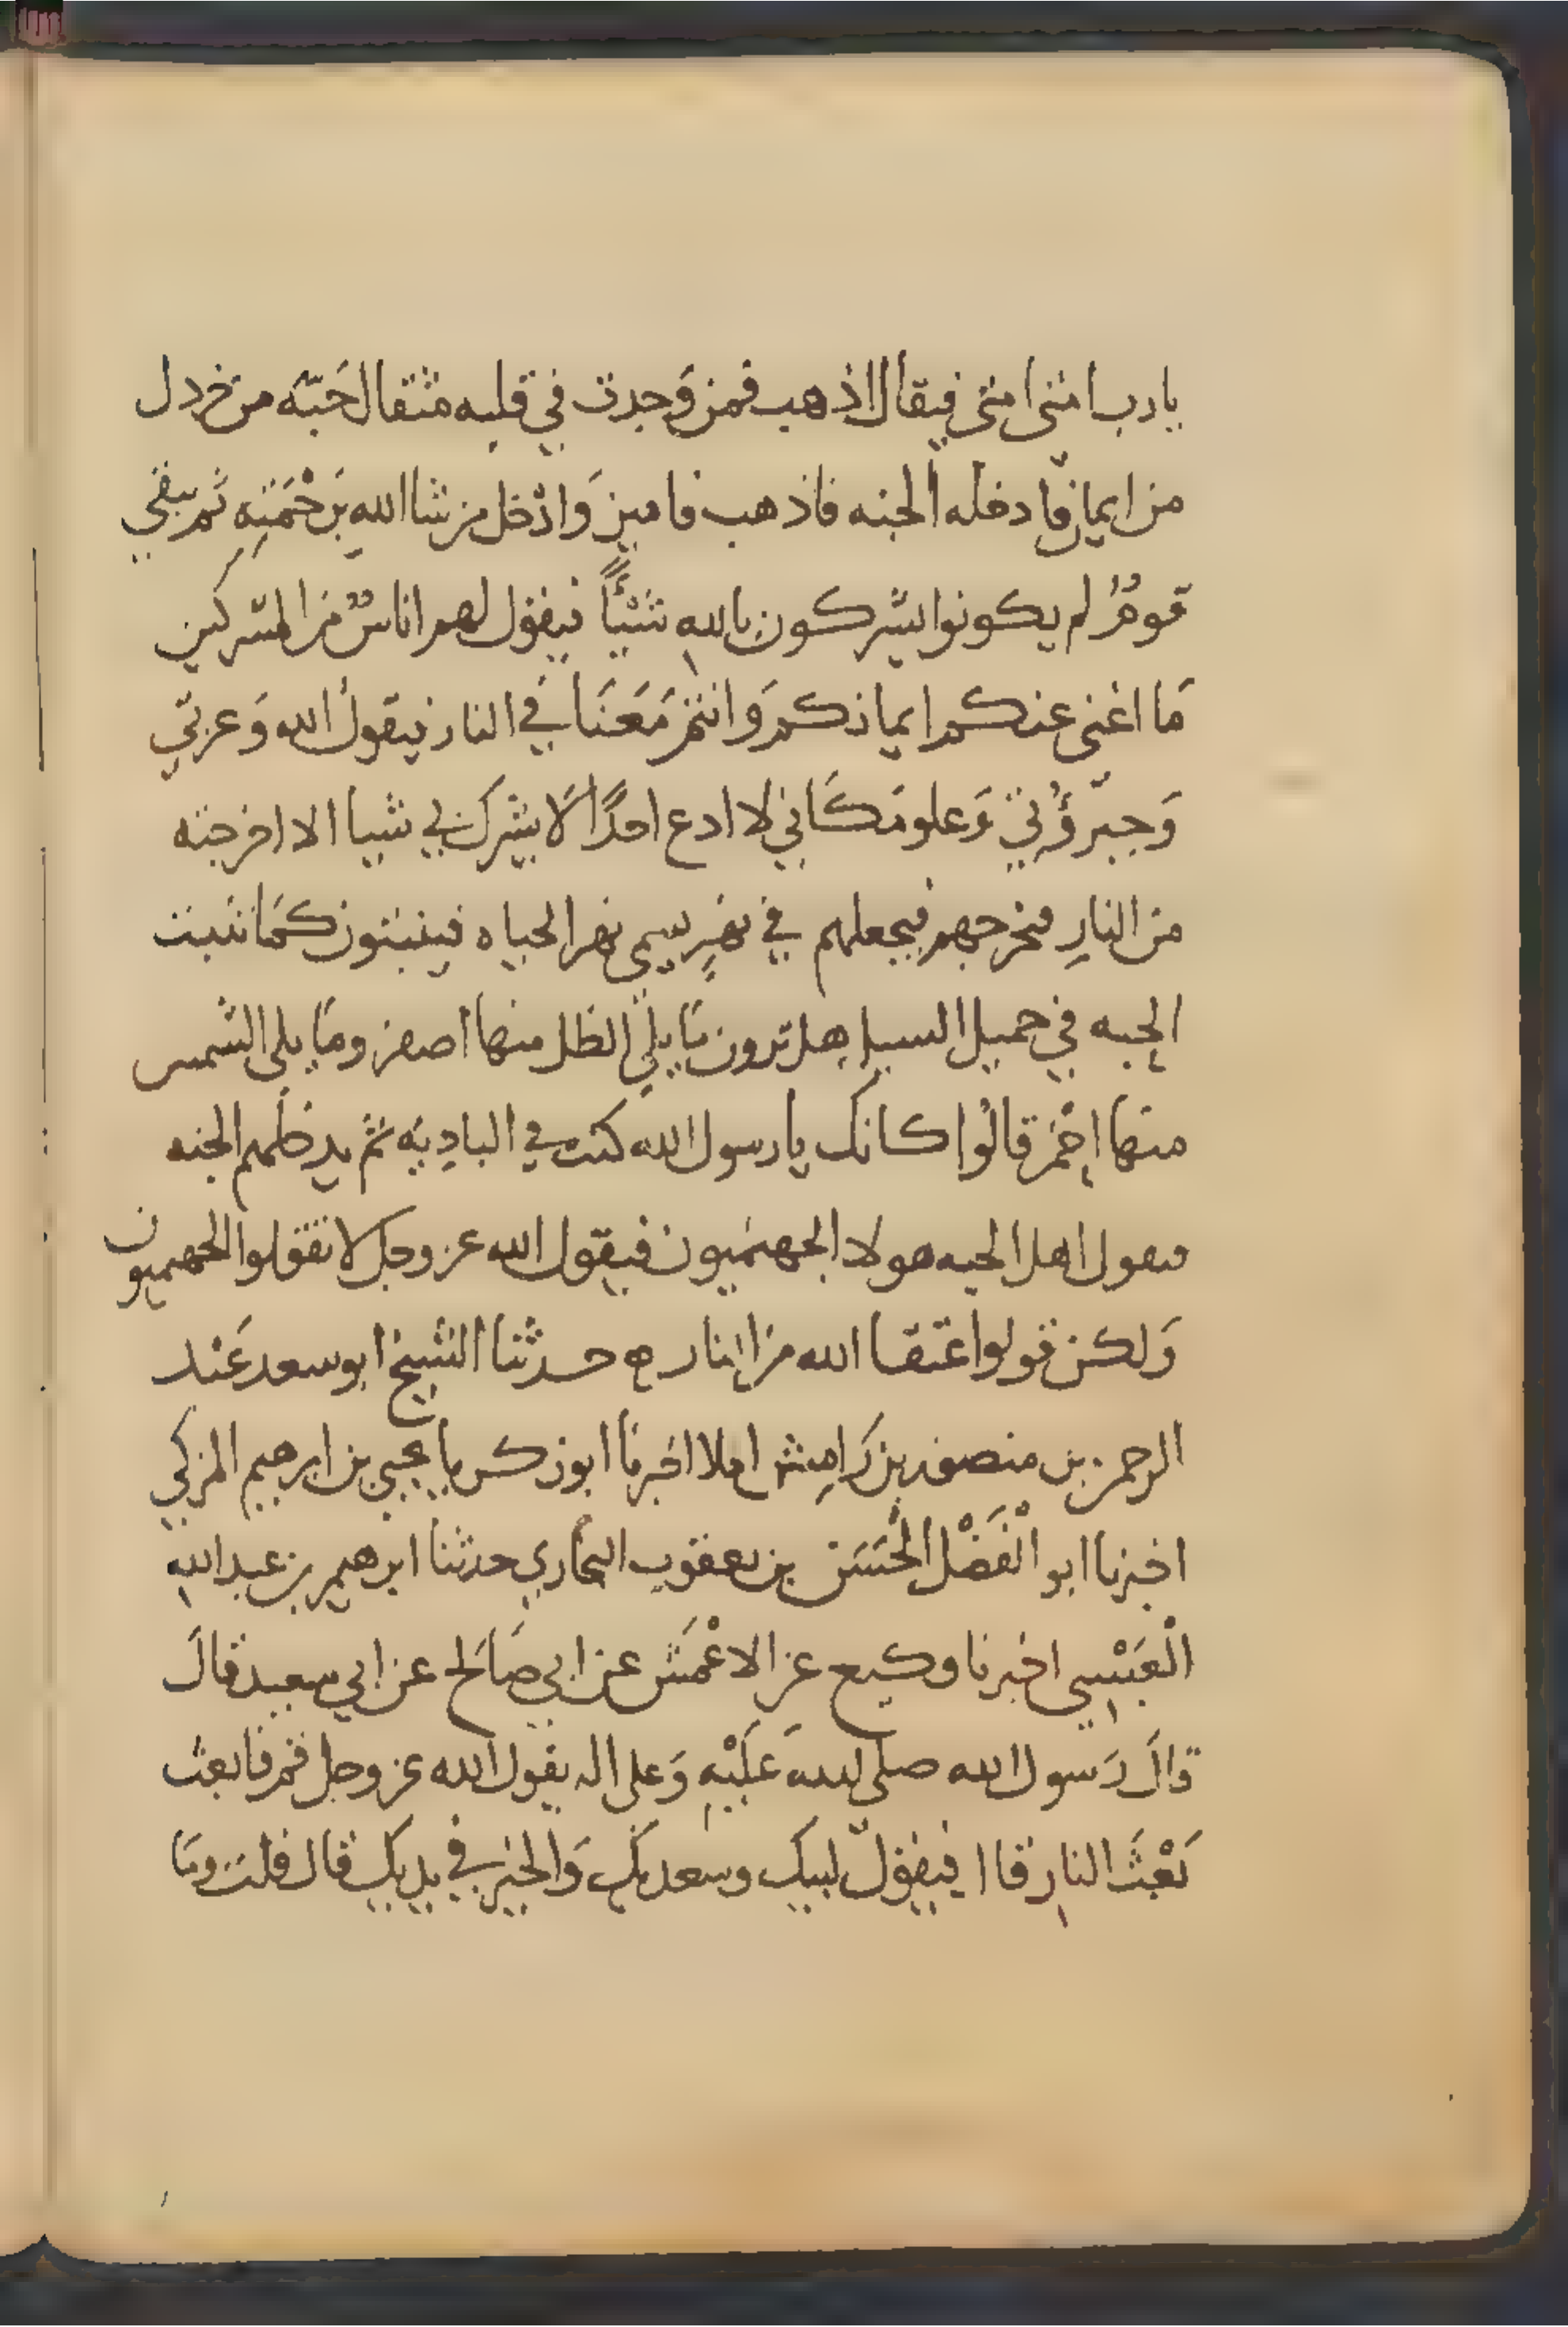 يا رب امتى امتى فيقال اذهب فمن وَجدت في قلبه مثقال حَبّه من خردل
من ايمان فادخله الجنه فاذهب فاميز وَادْخل من شا الله بَرحْمَتِهِ ثم يبقي
قومٌ لم يكونوا يشركون بالله شَيْئًا فيقول لهم اناسٌ من المشركين
مَا اغنى عنكم ايمانكم وَانتم مَعَنَا في النار فيقولُ الله وَعزتي
وَجبّرؤُتي وَعلو مَكَاني لا ادع احدًا لا يشرك بي شيا الا اخرجته
من النارِ فيخرجهم فيجعلهم في نهرٍ يسمى نهر الحياه فينبتون كمَا تنبت
الحِبه في حميل السيل هل ترون مَا يلي الظل منها اصفر ومَا يلي الشمس
منها اخْضر قالُوا كانك يا رسول الله كنت في الباديَه ثم يدخلهم الجنه
فيقول اهل الجنه هولا الجهنميون فيقول الله عز وجل لا تقولوا الجهنميون
وَلكن قولوا عتقا الله من النار ه حدثنا الشيخ ابو سعد عَبد
الرحمن بن منصور بن رَامِش املا اخبرنا ابو زكريا يحيي بن ابرهيم المزكي
اخبرنا ابو الْفَضْل الْحَسَن بن يعقوب البخاري حدثنا ابرهيم بن عبد اللهِ
الْعَبْسِي اخبرنا وكيع عن الاعْمَش عن ابي صَالح عن ابي سعيد قالَ
قالَ رَسول الله صلى اللهَ عَلَيْهِ وَعلى اله يقول الله عز وجل قم فابعث
بَعْثَ النارِ قا ا فيقولُ لبيك وسعديكَ وَالخير في يديك قال قلت ومَا